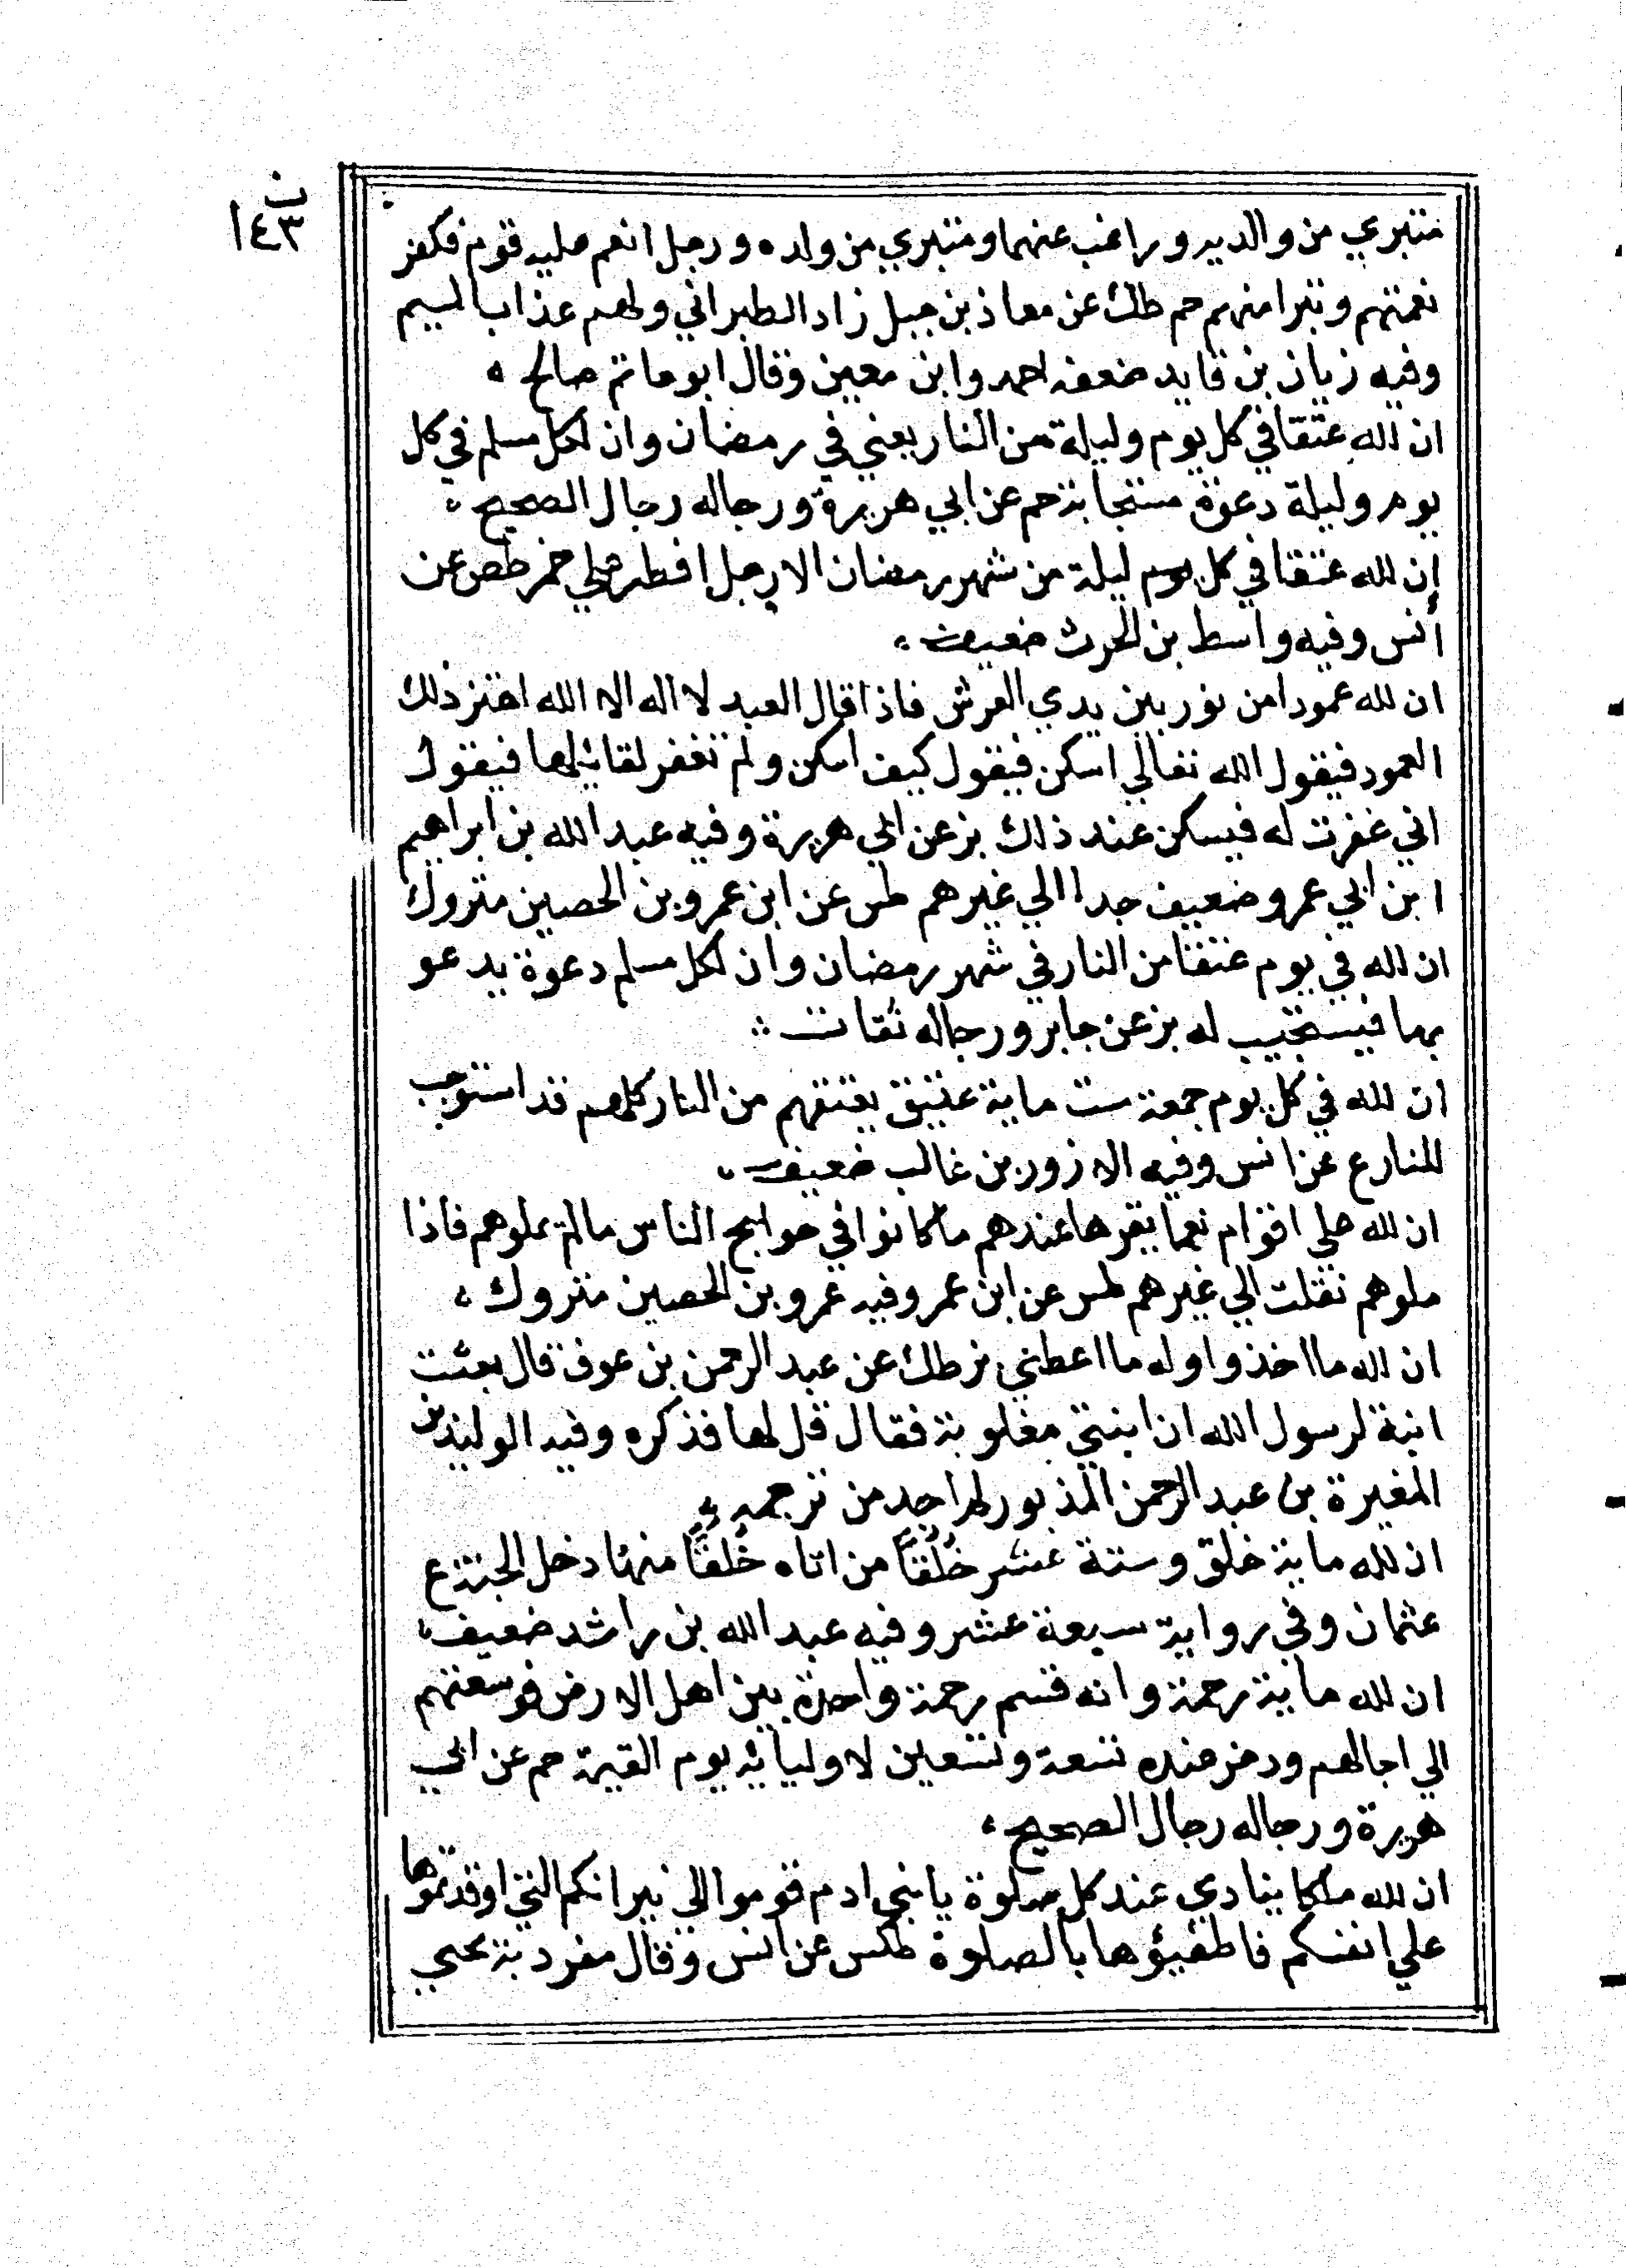 ن
١٤٣
متبري من والديه وراغب عنهما ومتبري من ولده ورجل انعم عليه قوم فكفر
نعمتهم وتبرا منهم حم طك عن معاذ بن جبل زاد الطبراني ولهم عذاب اليم
وفيه زبان بن فايد ضعفه احمد وابن معين وقال ابو حاتم صالح
ان لله عتقا في كل يوم وليلة من النار يعني في رمضان وان لكل مسلم في كل
يوم وليلة دعوة مستجابة حم عن ابي هريرة ورجاله رجال الصحيح
إن لله عتقا في كل يوم ليلة من شهر رمضان الا رجل افطر علي خمر طص عن
أنس وفيه واسط بن الحرث ضعيف
ان لله عمودا من نور بين يدي العرش فاذا قال العبد لا اله الا الله اهتز ذلك
العمود فيقول الله تعالي اسكن فيقول كيف اسكن ولم تغفر لقائلها فيقول
اني غفرت له فيسكن عند ذلك بز عن ابي هريرة وفيه عبد الله بن ابراهيم
ابن ابي عمرو ضعيف جدا الي غيرهم طس عن ابن عمرو بن الحصين متروك
ان لله في يوم عتقا من النار في شهر رمضان وان لكل مسلم دعوة يدعو
بها فيستجيب له بز عن جابر ورجاله ثقات
ان لله في كل يوم جمعة ست ماية عتيق يعتقهم من النار كلهم قد استوجب
للنار ع عن انس وفيه الازور بن غالب ضعيف
ان لله علي اقوام نعما يقرها عندهم ما كانوا في حوايج الناس مالم يملوهم فاذا
ملوهم نقلت الي غيرهم طس عن ابن عمر وفيه عمرو بن الحصين متروك
ان لله ما اخذ و اوله ما اعطني بز طك عن عبد الرحمن بن عوف قال بعثت
ابنة لرسول الله ان ابنتي مغلوبة فقال قل لها فذكره وفيه الوليد بن
المغيرة بن عبد الرحمن المذبور لم اجد من ترجمه
ان لله ماية خلق وستة عشر خُلُقًا من اتاه خُلقًا منها دخل الجنة ع
عثمان وفي رواية سبعة عشر وفيه عبد الله بن راشد ضعيف
ان لله ماية رحمة وانه قسم رحمة واحدة بين اهل الارض فوسعتهم
الي اجالهم ودخر عنده تسعة وتسعين لاوليائه يوم القيمة حم عن ابي
هريرة ورجاله رجال الصحيح
ان لله ملكا ينادي عند كل صلوة يا بني ادم قوموا الي نيرانكم التي اوقدتموها
علي انفسكم فاطفيؤها بالصلوة طكس عن انس وقال مفرد بة يحيي